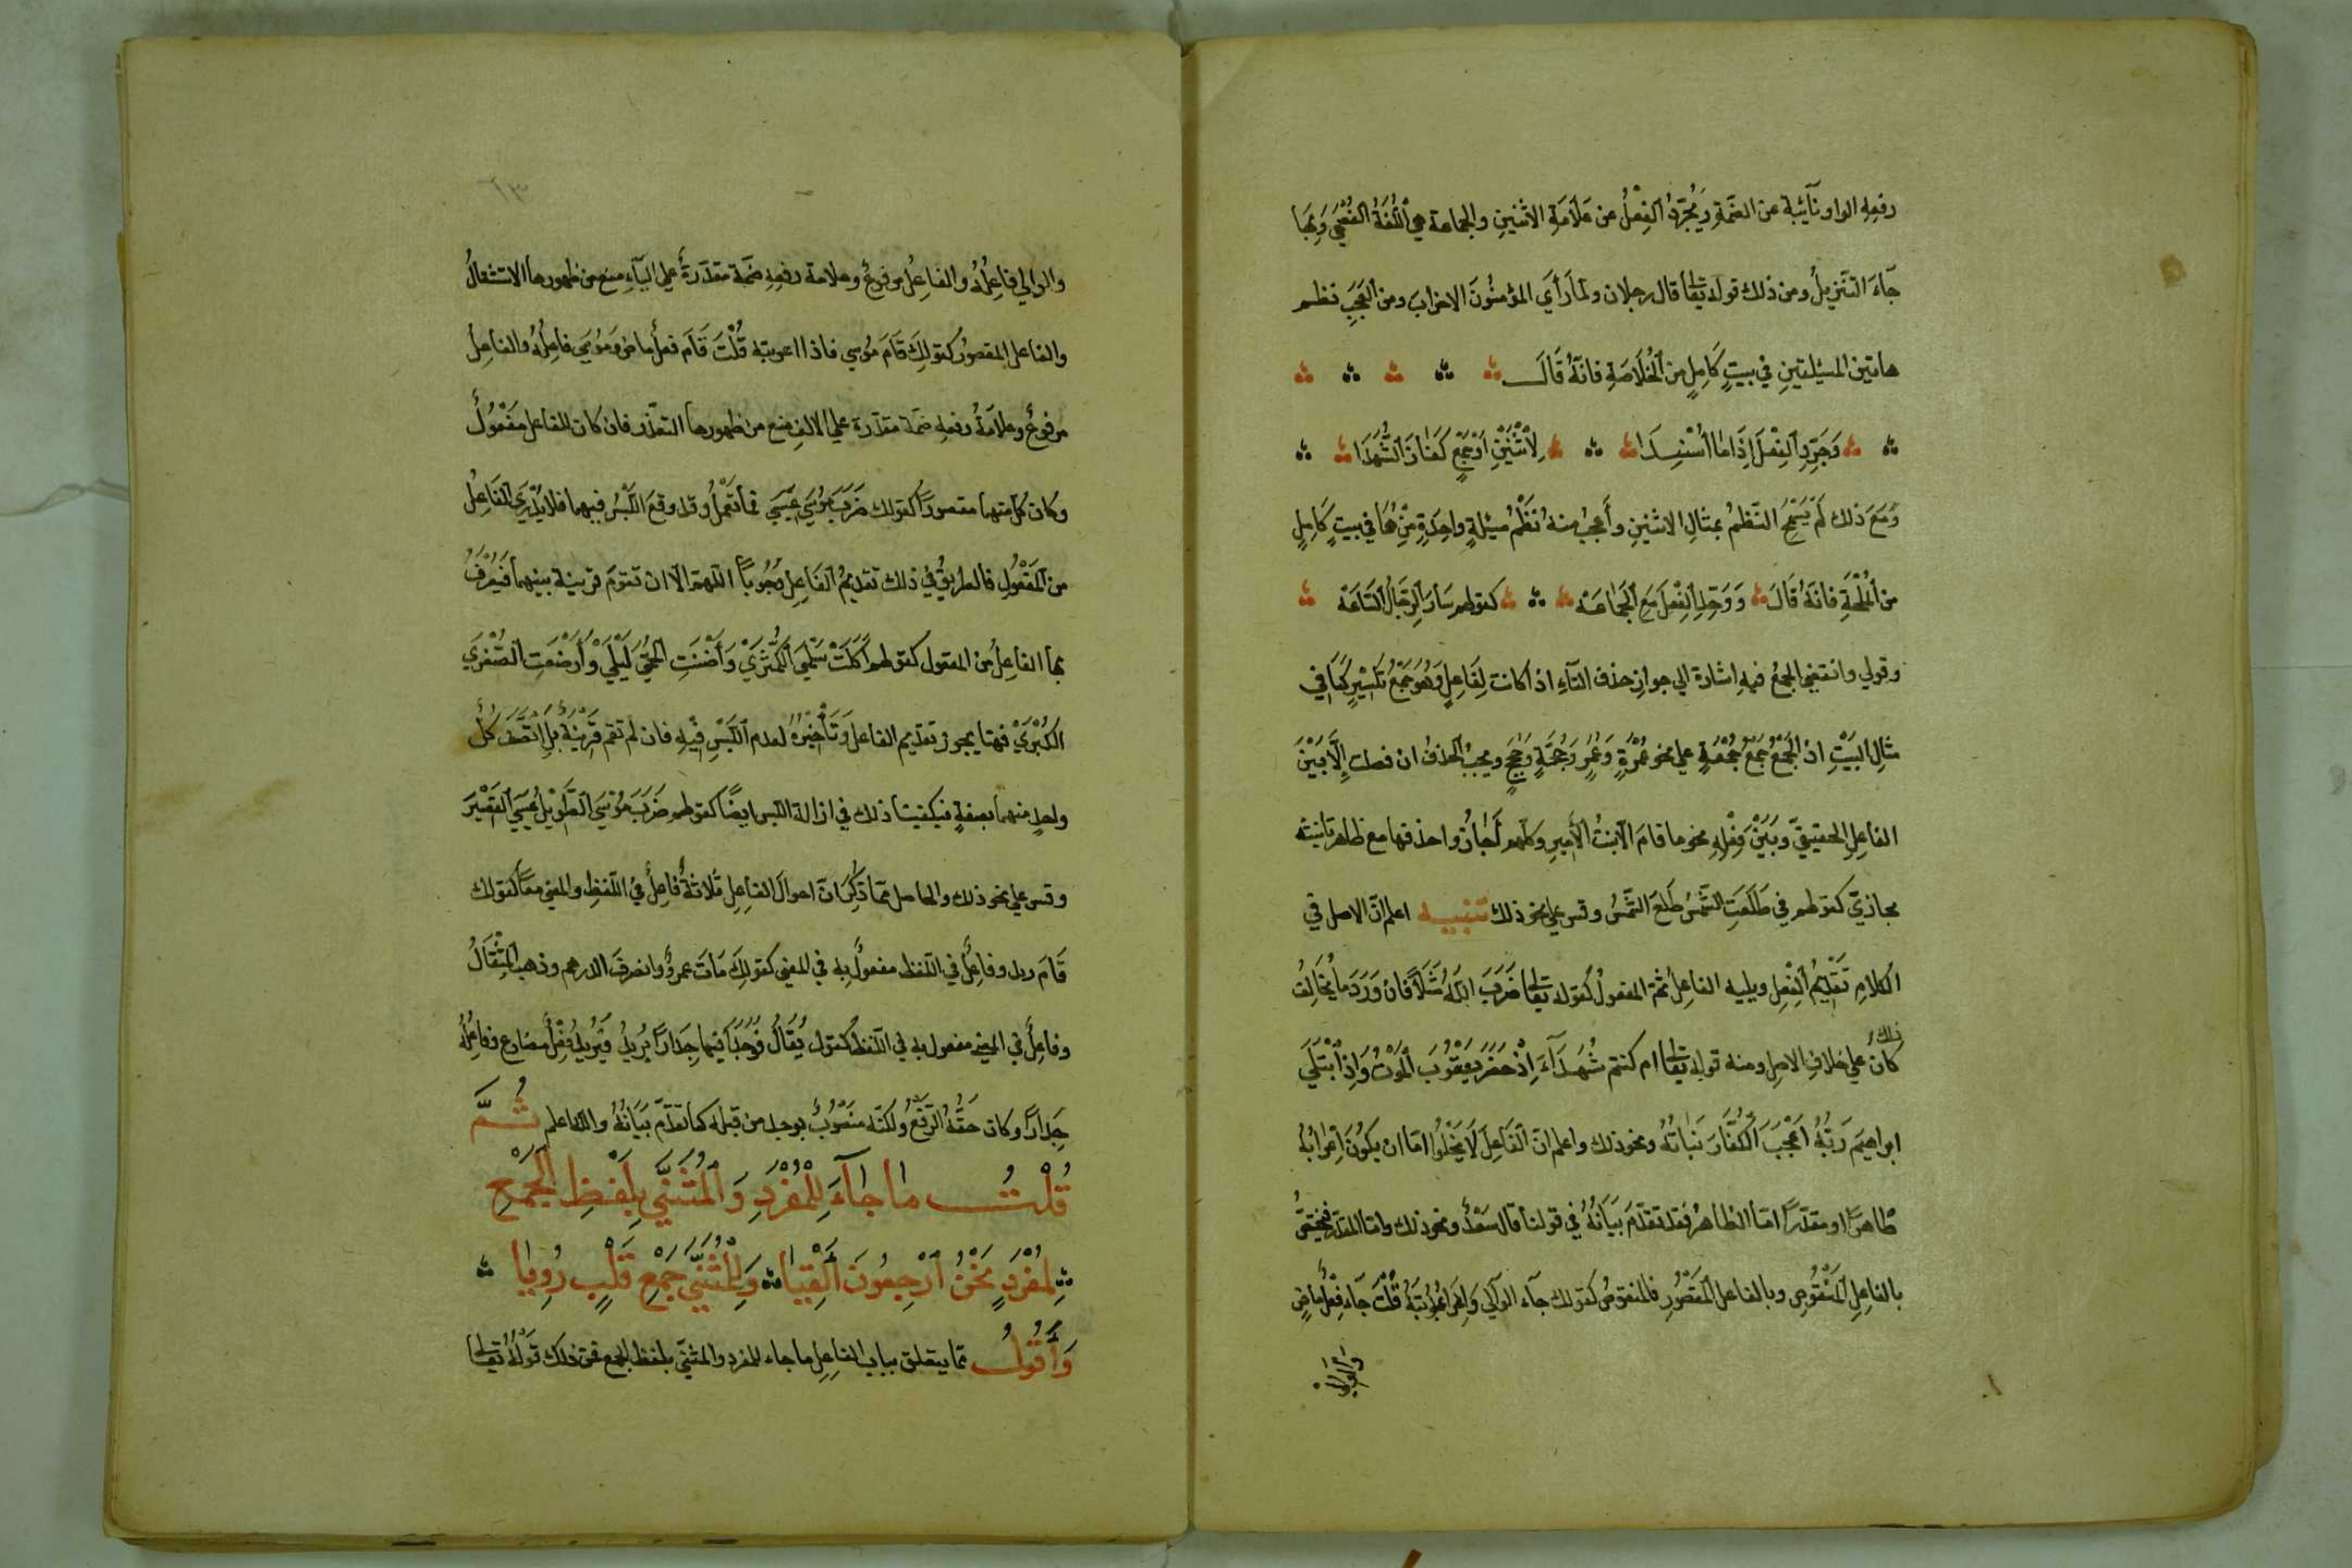 رفعِهِ الواو نآئبة عن الضمّةِ وَيُجرّدُ الفِعْلُ من عَلَامَةِ الاثنينِ والجماعة هي اللُّغَةُ الفُصْحَى وَبِهَا
جآءَ التنزيلُ ومن ذلك قوله تعالى قال رجلان ولمّا رَأَي المؤمنُونَ الاحزابَ ومن العَجَبِ نظم
هاتين المسئلتينِ في بيتٍ كَامِلٍ من الْخُلَاصَةِ فانّهُ قَالَ
وَجَرِّدِ الفِعْلَ إِذَا مَا أُسْنِدَا لِاثْنَيْنِ أَوْ جَمْعٍ كَفَازَ الشُّهَدَا
وَمَعَ ذلك لَمْ يَسْمَحِ النّظمُ بمثالِ الاثنينِ وأَعجبُ منهُ نَظْمُ مسئلةٍ واحِدَةٍ مِنْهُمَا في بيتٍ كَامِلٍ
من المُلْحَةِ فانّهُ قَالَ وَوَحِّدِ الفِعْلَ مَعَ الْجَمَاعَهْ كقولهم سَارَ الرِّجَالُ السَّاعَهْ
وقولي وانتفي الجمعُ فيهِ اشارة الي جوازِ حذف التآءِ اذا كانت لِفَاعِلٍ وَهُوَ جَمْعُ تَكْسِيْرٍ كَمَا في
مثالِ البَيْتِ اذ الجُمَعُ جَمْعُ جُمْعَةٍ علي نحو عُمْرَةٍ وَعُمَرٍ وَحُجَّةٍ وَحُجَجٍ ويجبُ الحذفُ ان فصلت إِلَّا بَيْنَ
الفاعِلِ الحقيقيِّ وَبَيْنَ فِعْلِهِ نحو ما قامَ الّا بنتُ الأَمِيرِ وكلّهم أَجازُوا حذفها مع ظاهر تانيثه
مجازيّ كقولهم في طَلَعَتِ الشَّمْسُ طَلَعَ الشَّمْسُ وقس علي نحو ذلك تنبيه اعلم انّ الاصل في
الكلامِ تَقْدِيمُ الْفِعْلِ ويليه الفاعِلُ ثمّ المفعولُ كقوله تعالى ضَرَبَ اللّهُ مَثَلًا فَان وَرَدَ ما يُخَالِفُ
ذلك
كان علي خلافِ الاصلِ ومنه قوله تعالى ام كنتم شُهَدَآءَ إِذْ حَضَرَ يَعْقُوبَ الْمَوْتُ وَإِذِ ابْتَلَي
ابراهيمَ رَبُّهُ أَعْجَبَ الْكُفَّارَ نَبَاتُهُ ونحو ذلك واعلم انّ الْفَاعِلَ لَا يَخْلُوا امّا ان يكُونَ إِعْرَابُهُ
ظاهرًا او مقدّرًا امّا الظاهرُ فقد تقدّمَ بَيَانُهُ في قولنا قال سَعْدٌ ونحو ذلك وامّا المقدّر فيختصُّ
بالفاعِلِ الْمَنْقُوصِ وبالفاعل الْمَقْصُورِ فالمنقوصُ كقولك جآء الوالي وَاِعْرَابُهُ قُلْتَ جَآءَ فِعْلٌ ماضٍ
والوالي
والوالي فاعِلُهُ والفاعِلُ مرفوعٌ وعلامة رفعِهِ ضمّة مقدّرَةٌ علي اليآءِ منع من ظهورها الاستثقالُ
والفاعل المقصورُ كقولِكَ قَامَ موسي فاذا اعربته قُلْتَ قَامَ فعلٌ ماضٍ وَمُوسَي فاعِلُهُ والفاعِلُ
مرفوعٌ وعلَامَةُ رفعِهِ ضمّة مقدّرة علي الالفِ منع من ظهورها التعذّر فان كان للفاعل مَفْعُولٌ
وكان كلّ منهما مقصورًا كقولك ضَرَبَ مُوْسَي عِيْسَي وقد وقَعَ اللَّبْسُ فيهما فلا يُدْرَي الْفَاعِلُ
من الْمَفْعُولِ فالطريقُ في ذلك تقديمُ الفَاعِلِ وُجُوبًا اللّهمّ الّا ان تقومَ قرينة بينهما فَيُعْرَفُ
بها الفاعِلُ من المفعول كقولهم أَكَلَتْ سَلْمَي الْكُمَّثْرَي وَأَضْنَتِ الحُمَّي لَيْلَي وَأَرْضَعَتِ الصُّغْرَي
الكُبْرَي فهنا يجوز تقديم الفاعل وَتَأْخِيْرُهُ لعدم اللَّبْسِ فيْهِ فان لم تقم قَرِيْنَةٌ بَلِ اتَّصَفَ كُلُّ
واحدٍ منهما بصفةٍ فيكفينا ذلك في ازالة اللبس ايضًا كقولهم ضَرَبَ مُوْسَي الطَّوِيْلُ عِيْسَي الْقَصِيْرَ
وقس علي نحو ذلك والحاصل ممّا ذُكِرَ انّ احوالَ الفاعِلِ ثلاثةٌ فاعِلٌ في اللّفظِ والمعني معًا كقولك
قَامَ زيد وفاعِلٌ في اللّفظ مفعولٌ بِهِ في المعني كقولِكَ مَاتَ عمروٌ وانصرفَ الدرهم وذهب المِثْقَالُ
وفاعِلٌ في المعني مفعول به في اللّفظ كقول يُقَالُ فوَجَدَا فيها جِدَارًا يُرِيدُ فَيُرِيدُ فِعْلٌ مضارع وفاعِلُهُ
جِدَارًا وكان حَقُّهُ الرَّفْعُ ولكنّه مَنْصُوبٌ بوجد من قبله كما تقدّم بَيَانُهُ واللّه اعلم ثُمَّ
قُلْتُ ما جَآءَ لِلْمُفْرَدِ وَالْمُثَنَّي بِلَفْظِ الْجَمْعِ
لِمُفْرَدٍ نَحْنُ ارْجِعُونَ أَلْقِيَا وَلِلْمُثَنَّي جَمْعِ قَلْبٍ رُوِيَا
وَأَقُولُ ممّا يتعلق بباب الفاعِلِ ما جاء للمفرد والمثنّي بلفظ الجمع فمن ذلك قَوْلُهُ تعالى